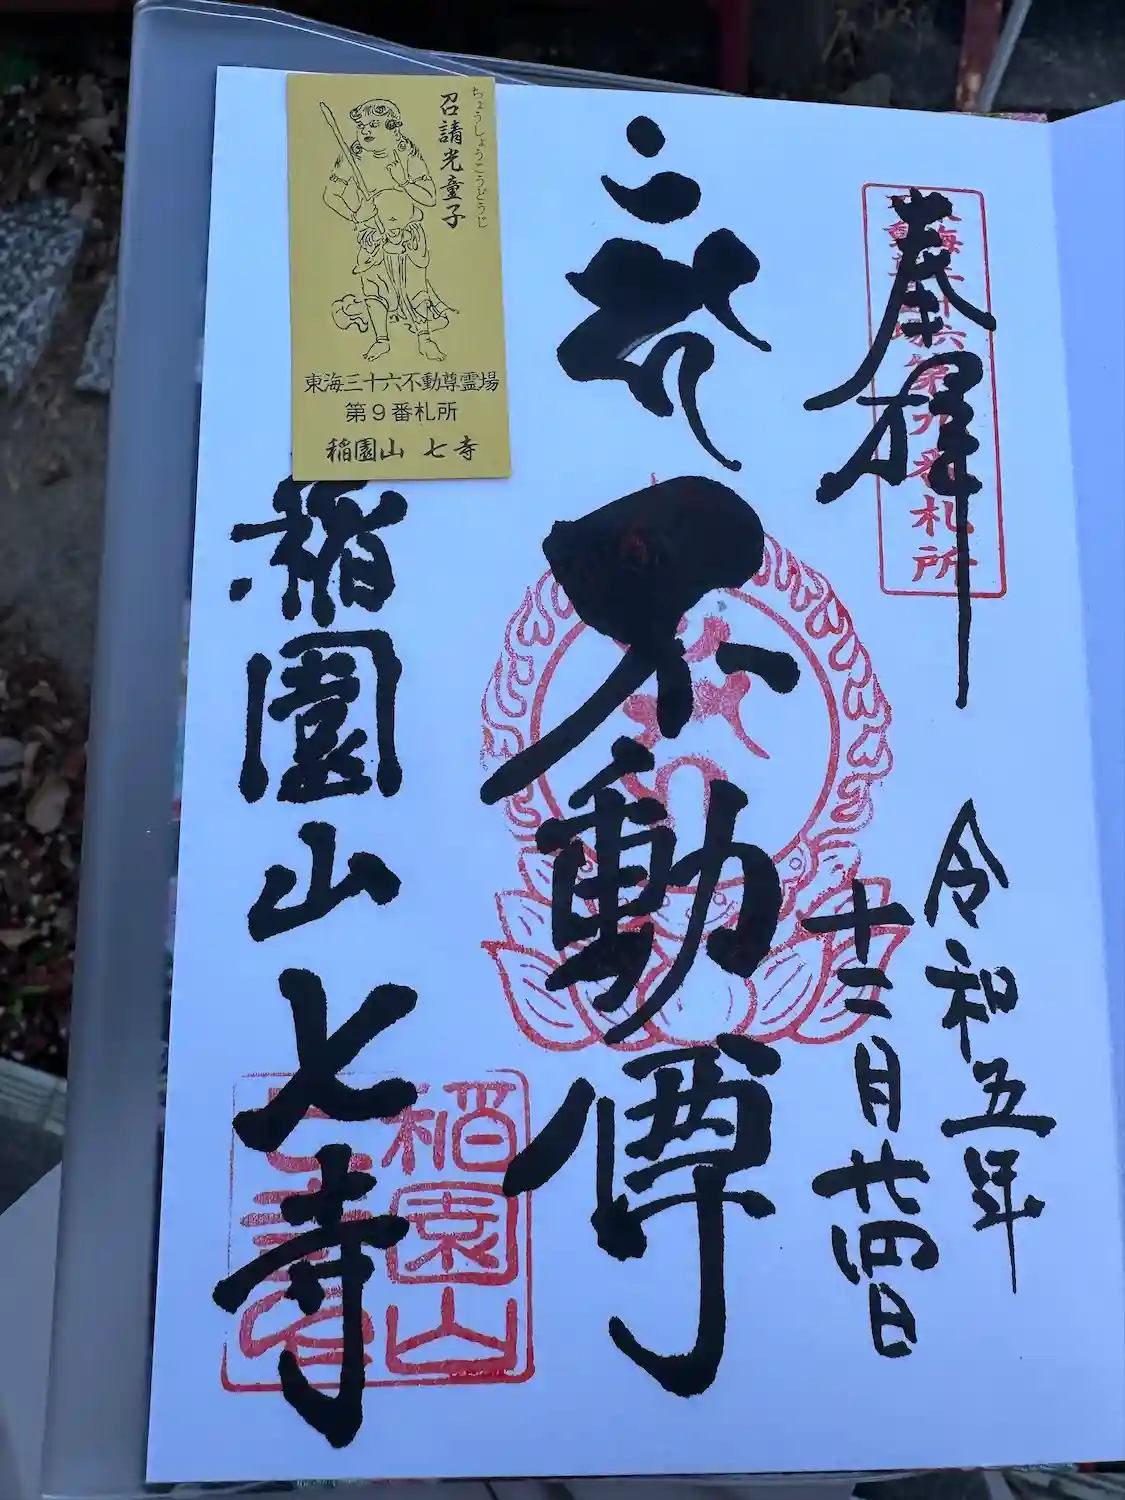 奉拝
令和五年
十二月廿四日
不動尊
稲園山七寺
ちょうしょうこうどうじ
召請光童子
東海三十六不動尊霊場
第9番札所
稲園山 七寺
稲園山